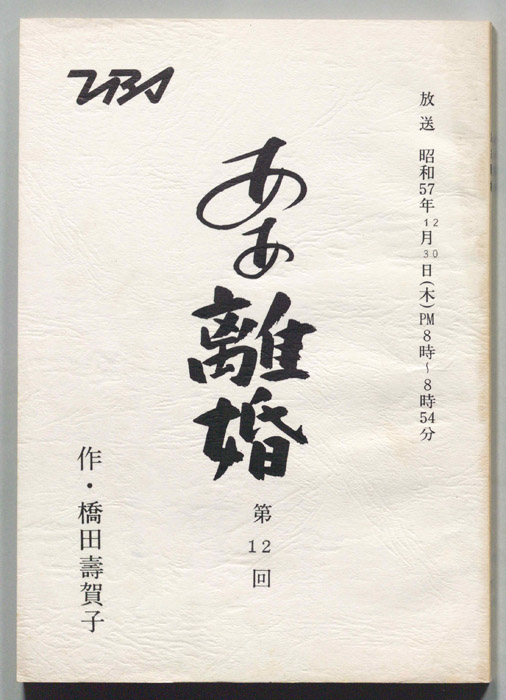 TBS
放送 昭和57年12月30日(木)PM8時~8時54分
ああ
離婚
第12回
作・橋田壽賀子